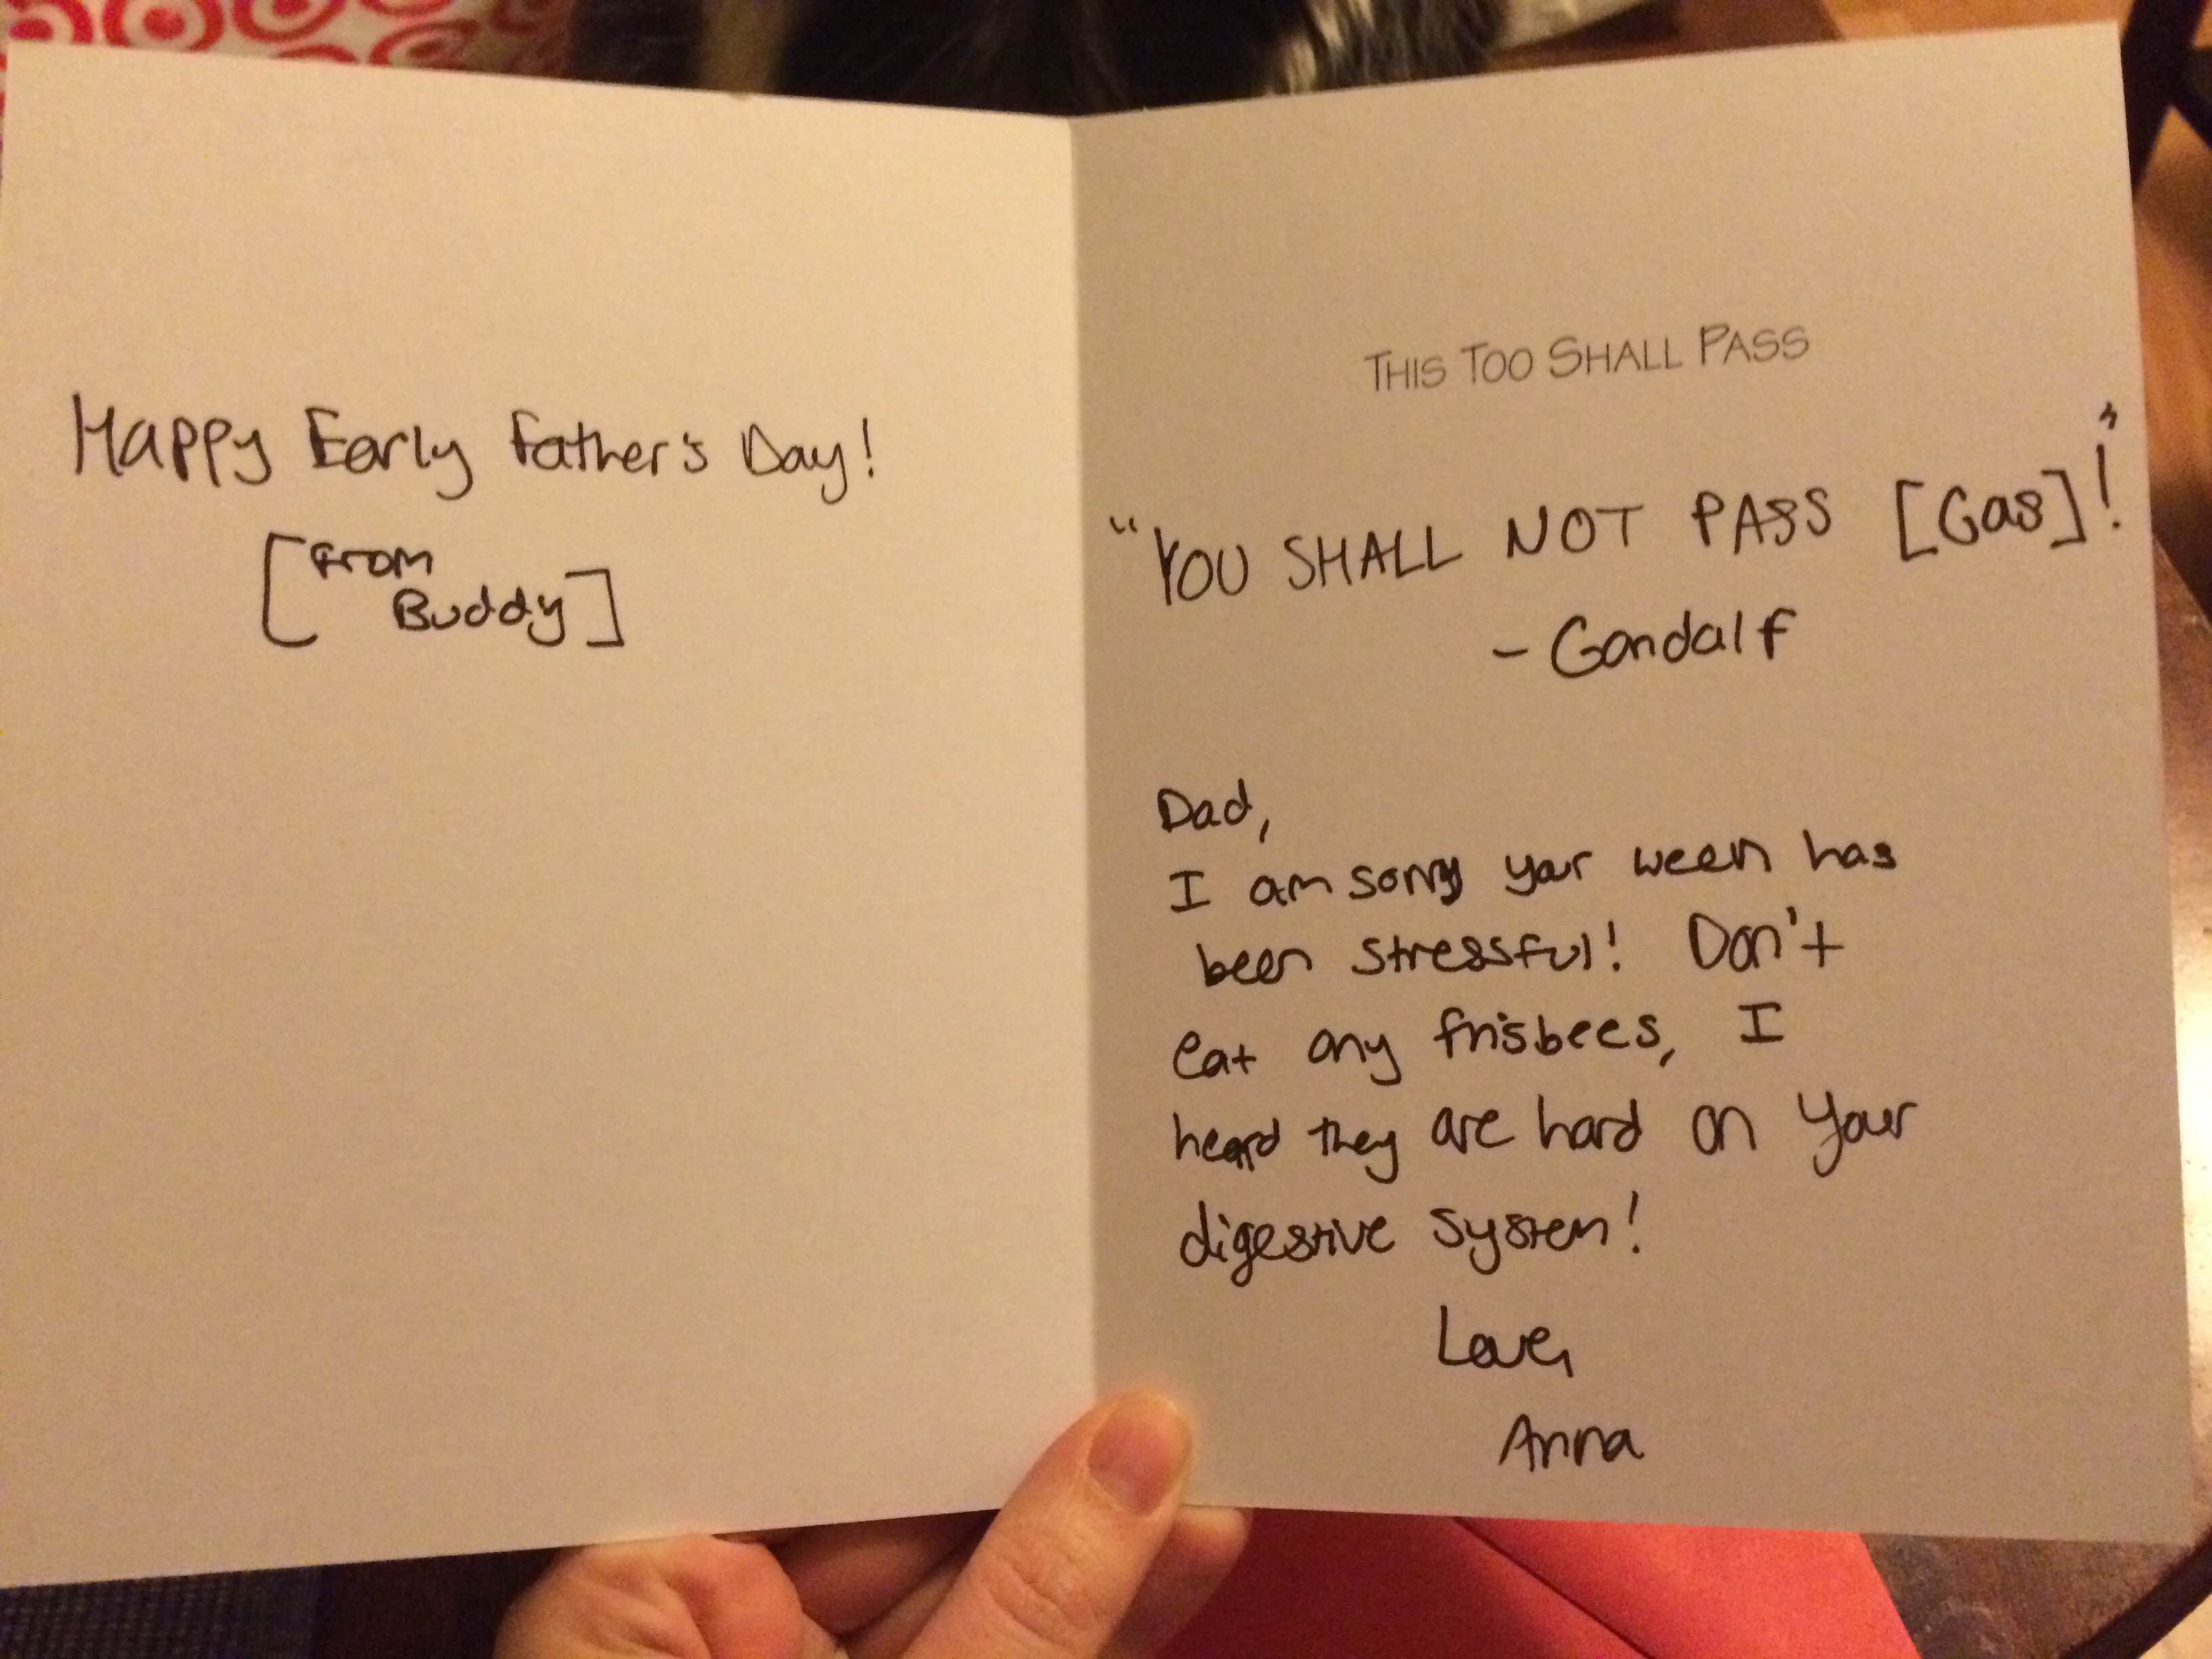 Happy Early Father's Day!
[From
Buddy]
THIS TOO SHALL PASS
"YOU SHALL NOT PASS [Gas]!"
- Gandalf
Dad,
I am sorry your ween has
been stressful! Don't
eat any frisbees, I
heard they are hard on your
digestive system!
Love,
Anna